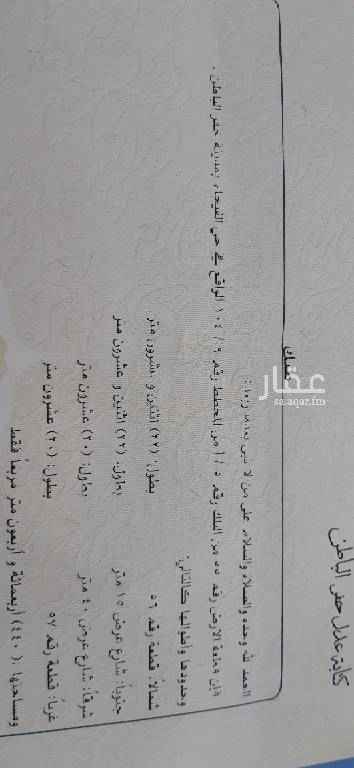 كتابة عدل حفر الباطن
صك
الحمد لله وحده والصلاة والسلام على من لا نبي بعده، وبعد:
فإن قطعة الأرض رقم ٥٥ من البلك رقم ١ من المخطط رقم ٩ / ١٠٤ الواقع في حي الفيحاء بمدينة حفر الباطن .
وحدودها وأطوالها كالتالي:
شمالاً: قطعة رقم ٥٦ بطول: (٢٢) اثنين و عشرون متر
جنوباً: شارع عرض ١٥ متر بطول: (٢٢) اثنين و عشرون متر
شرقاً: شارع عرض ٤٠ متر بطول: (٢٠) عشرون متر
غرباً: قطعة رقم ٥٧ بطول: (٢٠) عشرون متر
ومساحتها: (٤٤٠) أربعمائة و أربعون متر مربعاً فقط
عقار
sa.aqar.fm